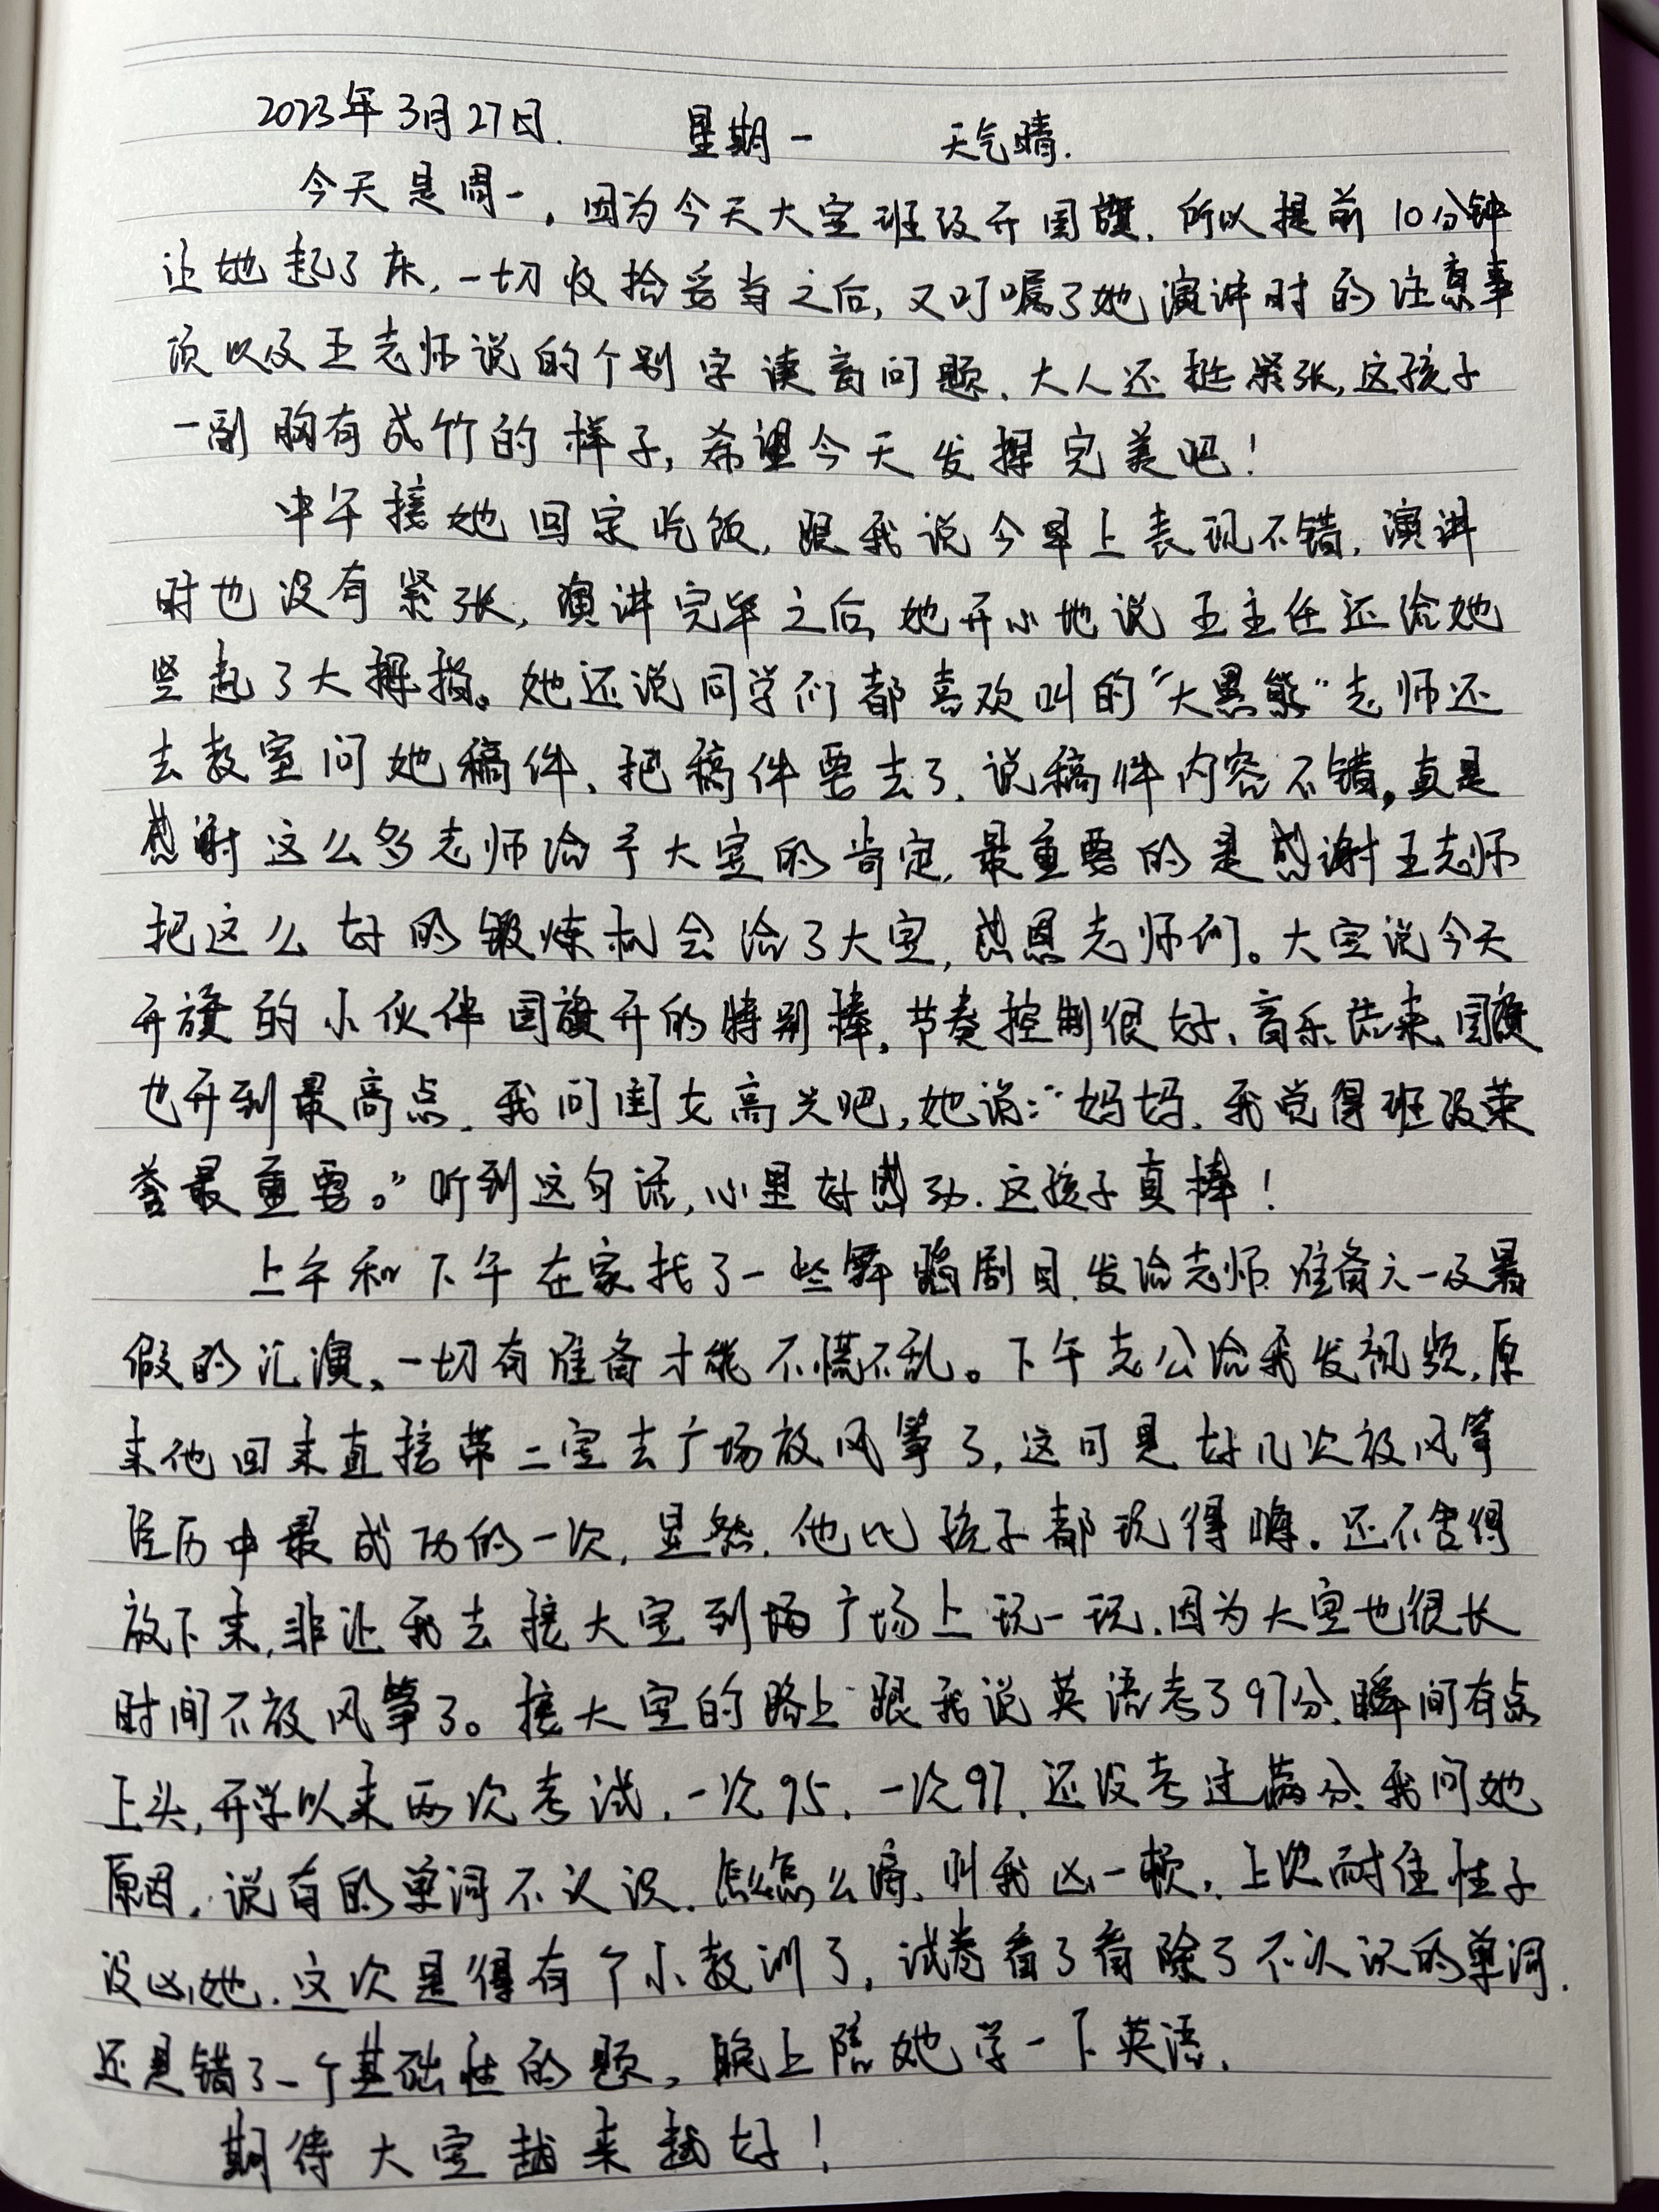 2023年3月27日. 星期一 天气晴.
今天是周一,因为今天大宝班级升国旗.所以提前10分钟
让她起了床,一切收拾妥当之后,又叮嘱了她演讲时的注意事
项以及王老师说的个别字读音问题.大人还挺紧张,这孩子
一副胸有成竹的样子,希望今天发挥完美吧!
中午接她回家吃饭,跟我说今早上表现不错.演讲
时也没有紧张,演讲完毕之后,她开心地说王主任还给她
竖起了大拇指。她还说同学们都喜欢叫的“大黑熊”老师还
去教室问她稿件.把稿件要去了.说稿件内容不错,真是
感谢这么多老师给予大宝的肯定,最重要的是感谢王老师
把这么好的锻炼机会给了大宝,感恩老师们。大宝说今天
升旗的小伙伴国旗升的特别棒,节奏控制很好.音乐结束,国旗
也升到最高点.我问闺女高兴吧,她说:“妈妈.我觉得班级荣
誉最重要。”听到这句话,心里好感动.这孩子真棒!
上午和下午在家找了一些舞蹈剧目.发给老师准备六一及暑
假的汇演,一切有准备才能不慌不乱。下午老公给我发视频,原
来他回来直接带二宝去广场放风筝了,这可是好几次放风筝
经历中最成功的一次,显然.他比孩子都玩得嗨.还不舍得
放下来,非让我去接大宝到广场上玩一玩.因为大宝也很长
时间不放风筝了。接大宝的路上跟我说英语考了97分,瞬间有点
上头,开学以来两次考试.一次95.一次97.还没考过满分.我问她
原因.说有的单词不认识.怎么,叫我凶一顿.上次耐住性子
没凶她.这次是得有个小教训了,试卷看了看除了不认识的单词.
还是错了一个基础性的题,晚上陪她学一下英语.
期待大宝越来越好!